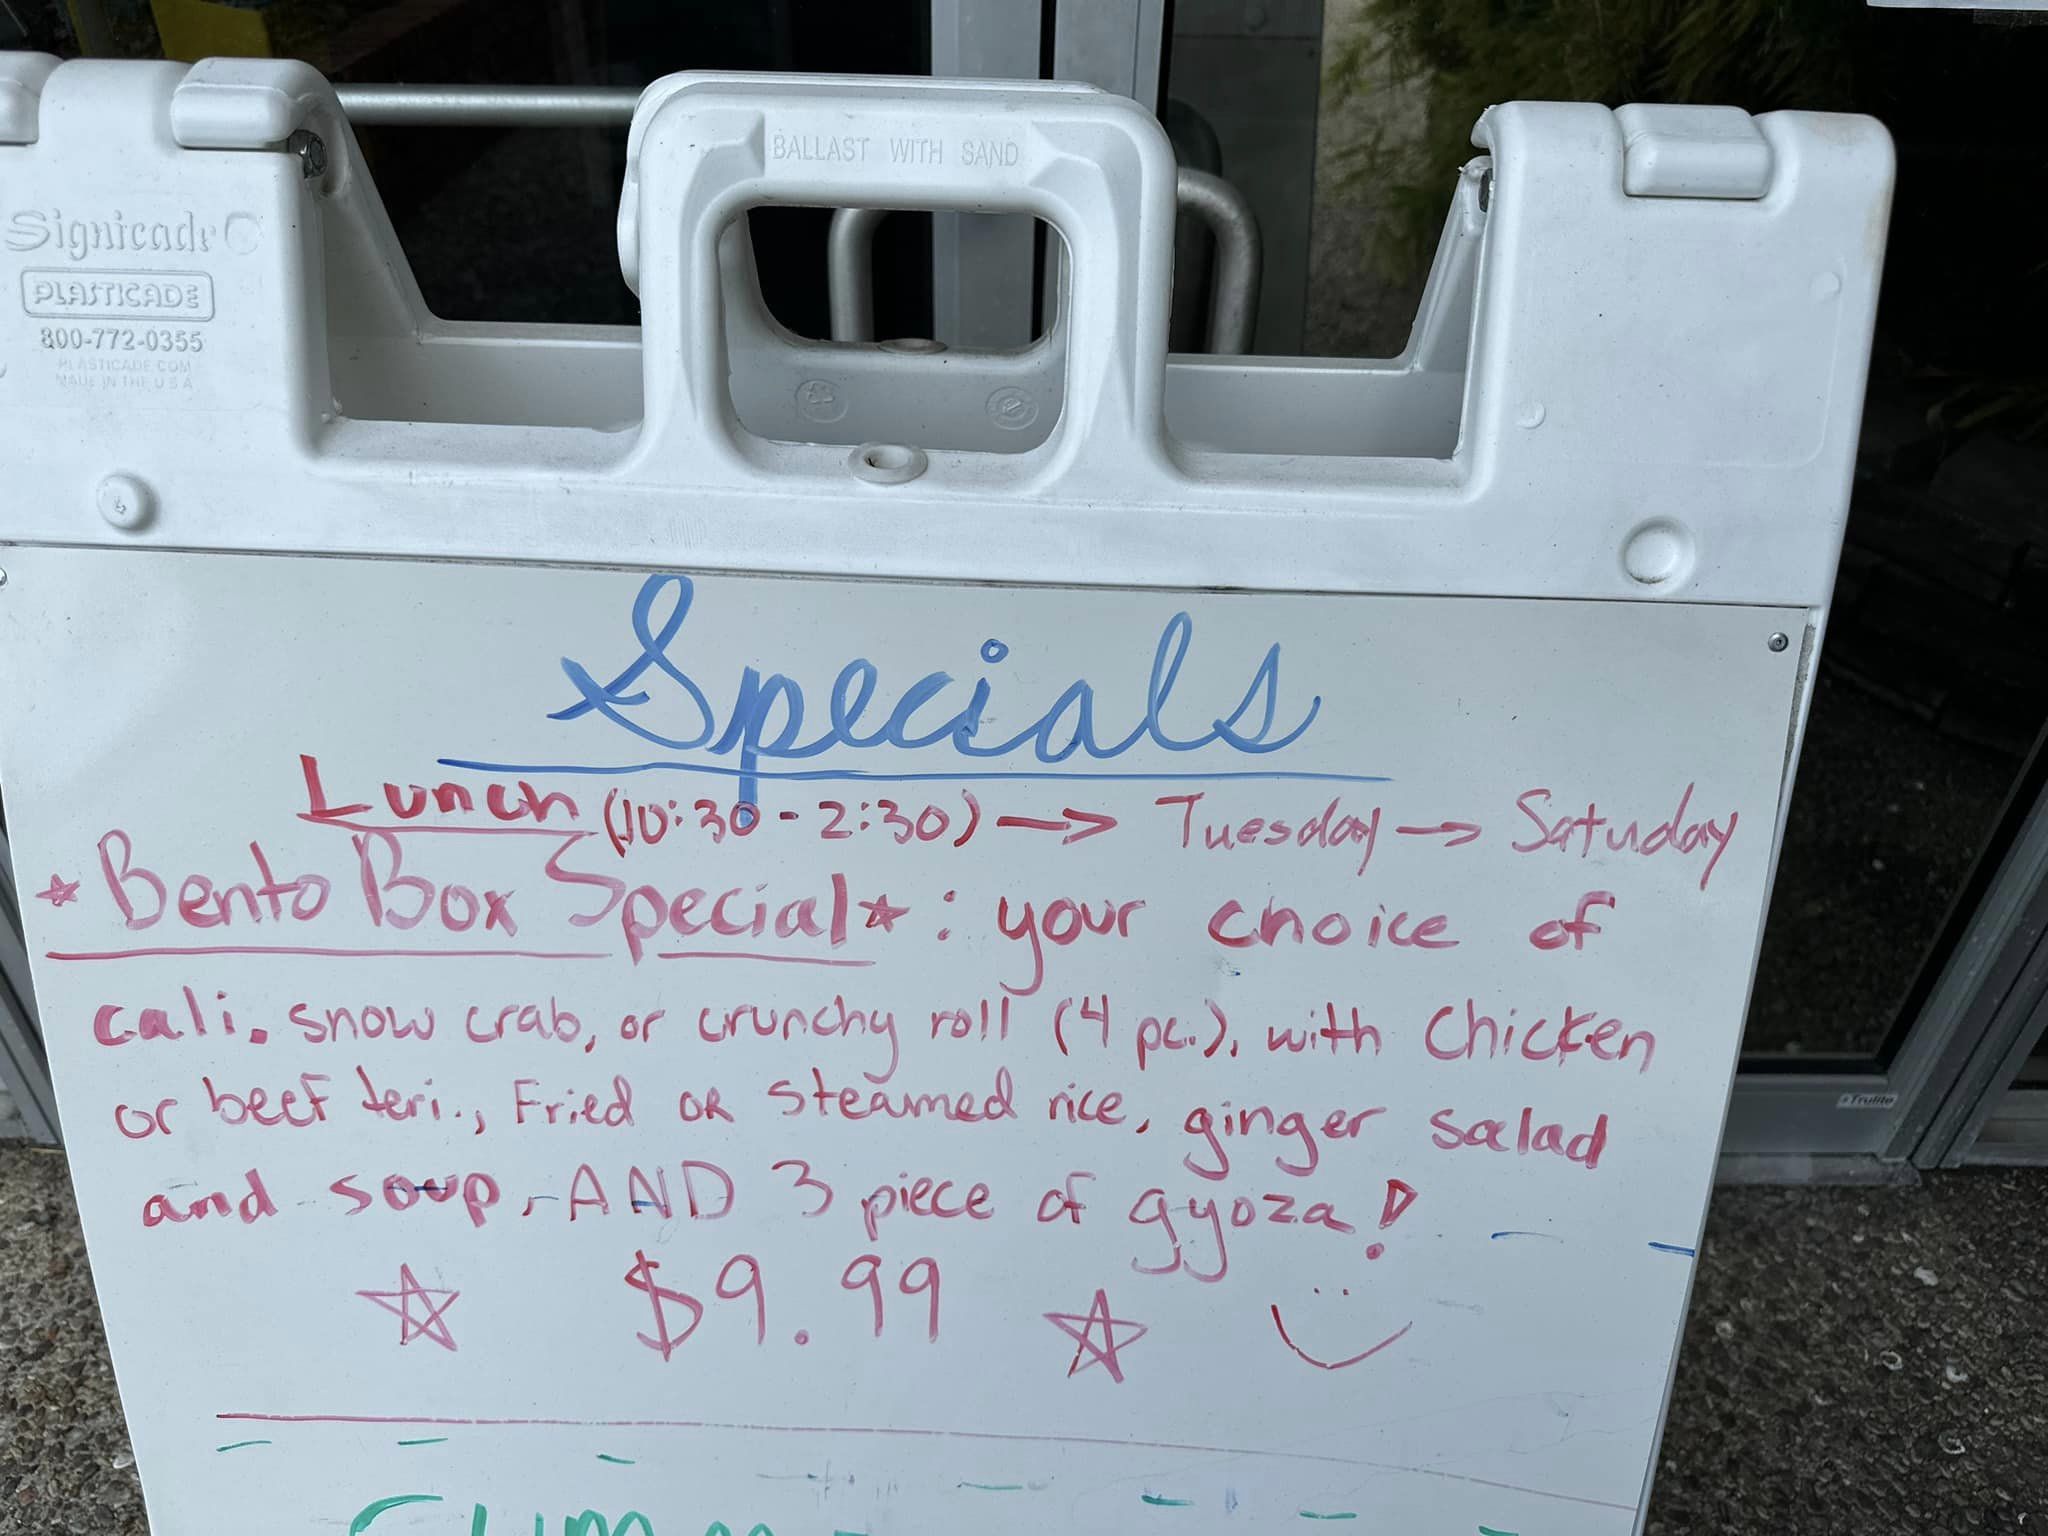 BALLAST WITH SAND
Signicade
PLASTICADE
800-772-0355
PLASTICADE.COM
MADE IN THE U S A
Specials
Lunch (10:30 - 2:30) → Tuesday → Satuday
★ Bento Box Special ★ : your choice of
cali. snow crab, or crunchy roll (4 pc.), with chicken
or beef teri., Fried or steamed rice, ginger salad
and soup, AND 3 piece of gyoza!
$9.99
Trulite